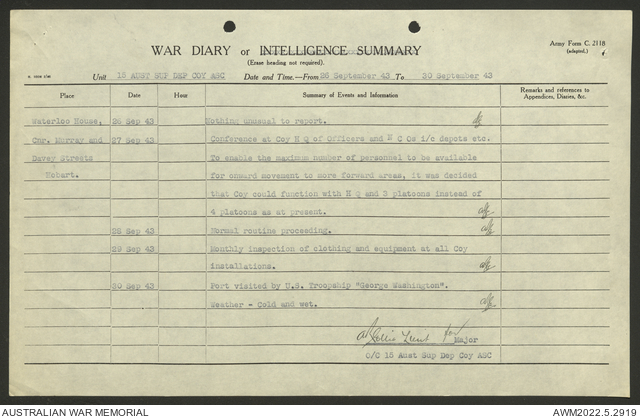 WAR DIARY or INTELLIGENCE SUMMARY
Army Form C. 2118
(adapted.)
(Erase heading not required).
Unit 15 AUST SUP DEP COY ASC Date and Time.—From 26 September 43 To 30 September 43
Place Date Hour Summary of Events and Information Remarks and references to Appendices, Diaries, &c.
Waterloo House, 26 Sep 43 Nothing unusual to report.
Cnr. Murray and 27 Sep 43 Conference at Coy H Q of Officers and N C Os i/c depots etc.
Davey Streets To enable the maximum number of personnel to be available
Hobart. for onward movement to more forward areas, it was decided
that Coy could function with H Q and 3 platoons instead of
4 platoons as at present.
28 Sep 43 Normal routine proceeding.
29 Sep 43 Monthly inspection of clothing and equipment at all Coy
installations.
30 Sep 43 Port visited by U.S. Troopship "George Washington".
Weather - Cold and wet.
Lieut for Major
O/C 15 Aust Sup Dep Coy ASC
AUSTRALIAN WAR MEMORIAL AWM2022.5.2919